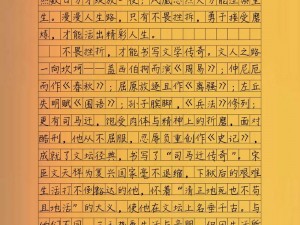 生。漫漫人生路，只有不畏挫折，勇于接受磨
练，才能活出精彩人生。
不畏挫折，才能书写文学传奇。文人之路
一向坎坷——盖西伯拘而演《周易》；仲尼厄
而作《春秋》；屈原放逐且赋《离骚》；左丘
失明赋《国语》；孙子膑脚，《兵法》修列；
更有司马迁，饱受肉体与精神上的折磨，面对
酷刑，他从不屈服，忍辱负重创作《史记》，
成就了文坛经典，书写了“司马迁传奇”。宋
臣文天祥为复兴国家毫不退缩，下狱后的艰难
生活打不倒豁达的他，怀着“清
的大义，使他在文坛上名垂千古。与